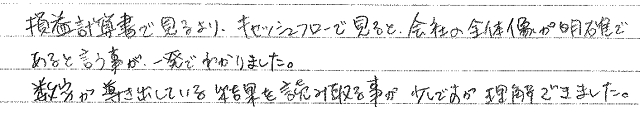 損益計算書で見るより、キャッシュフローで見ると、会社の全体像が明確で
あると言う事が、一発でわかりました。
数字が導き出している結果を読み取る事が少しですが理解できました。